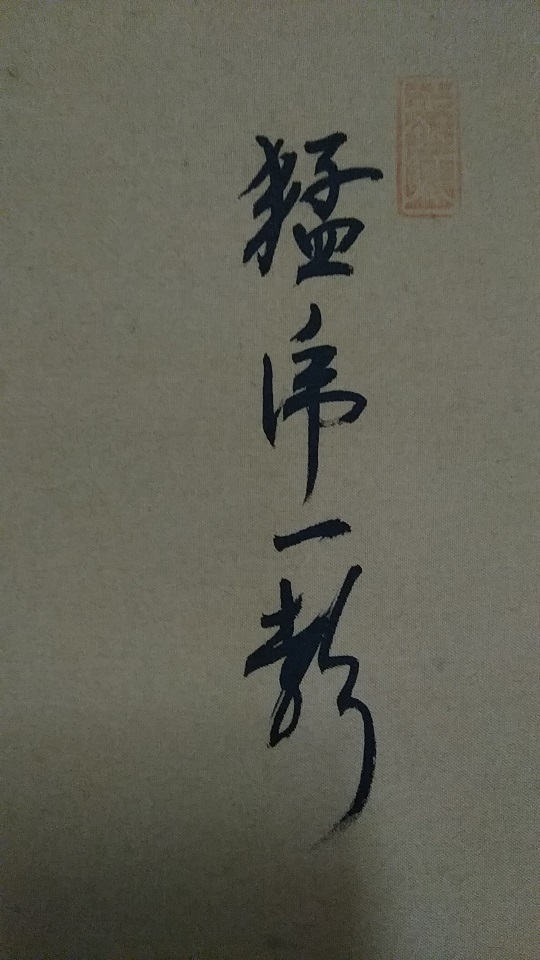 猛虎一聲